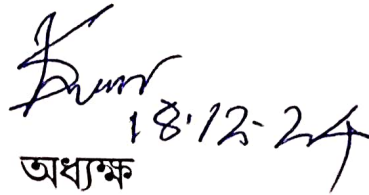 18.12.24
অধ্যক্ষ